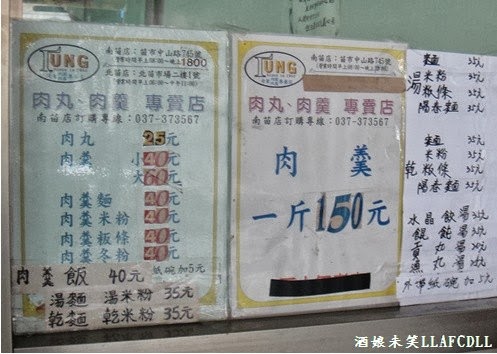 TUNG
南苗店：苗市中山路745號
營業時間早上08:00～晚上1800
北苗店：北苗市場二樓1號
肉丸、肉羹 專賣店
南苗店訂購專線：037-373567
肉丸 25元
肉羹 小40元
大60元
肉羹麵 40元
肉羹米粉 40元
肉羹粄條 40元
肉羹冬粉 40元
肉羹飯 40元 紙碗加5元
湯麵 湯米粉 35元
乾麵 乾米粉 35元
TUNG
南苗店：苗市中山路745號
肉丸、肉羹 專賣店
南苗店訂購專線：037-373567
肉羹
一斤150元
湯
麵 35元
米粉 35元
粄條 35元
陽春麵 35元
乾
麵 35元
米粉 35元
粄條 35元
陽春麵 35元
水晶餃湯 35元
餛飩湯 35元
貢丸湯 35元
魚丸湯 35元
外帶紙碗加5元
酒娘未笑LLAFCDLL